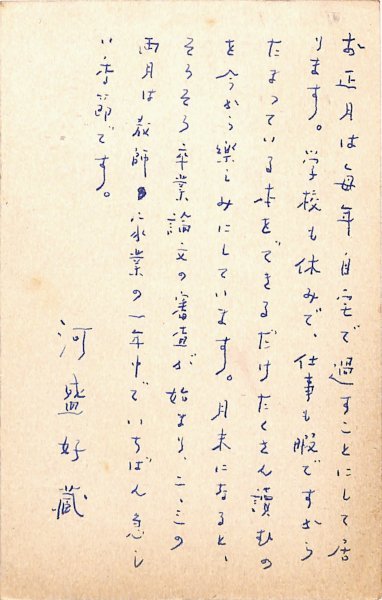 お正月は毎年自宅で過すことにして居
ります。学校も休みで、仕事も暇ですから
たまっている本をできるだけたくさん讀むの
を今から樂しみにしています。月末になると、
そろそろ卒業論文の審査が始まり、二、三の
両月は教師家業の一年中でいちばん忙し
い季節です。
河盛好藏